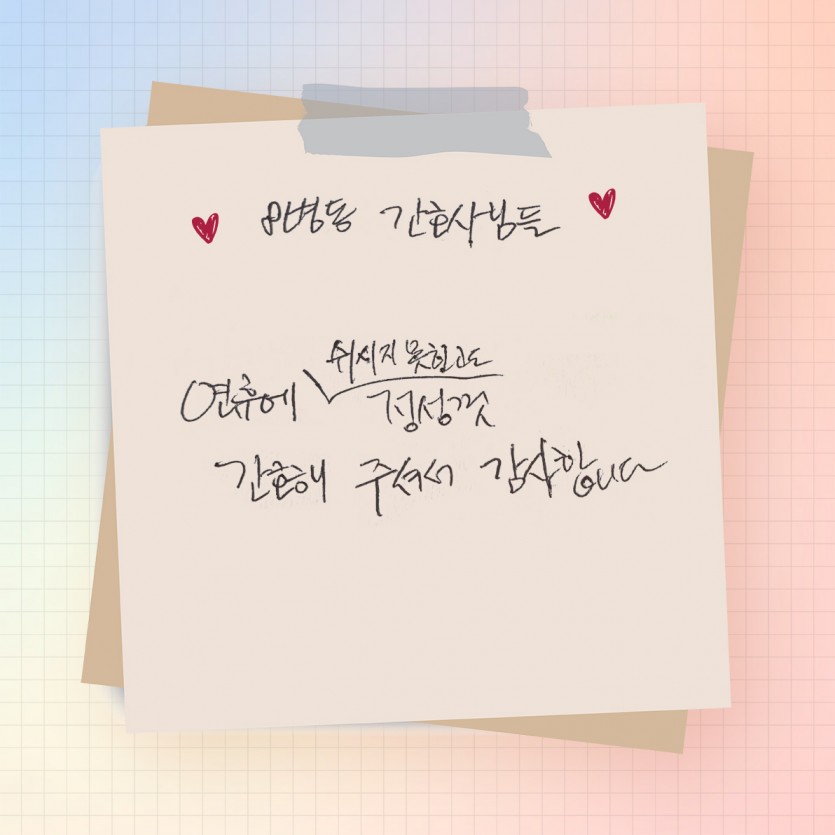 81병동 간호사님들
쉬시지 못하고도
연휴에 정성껏
간호해 주셔서 감사합니다